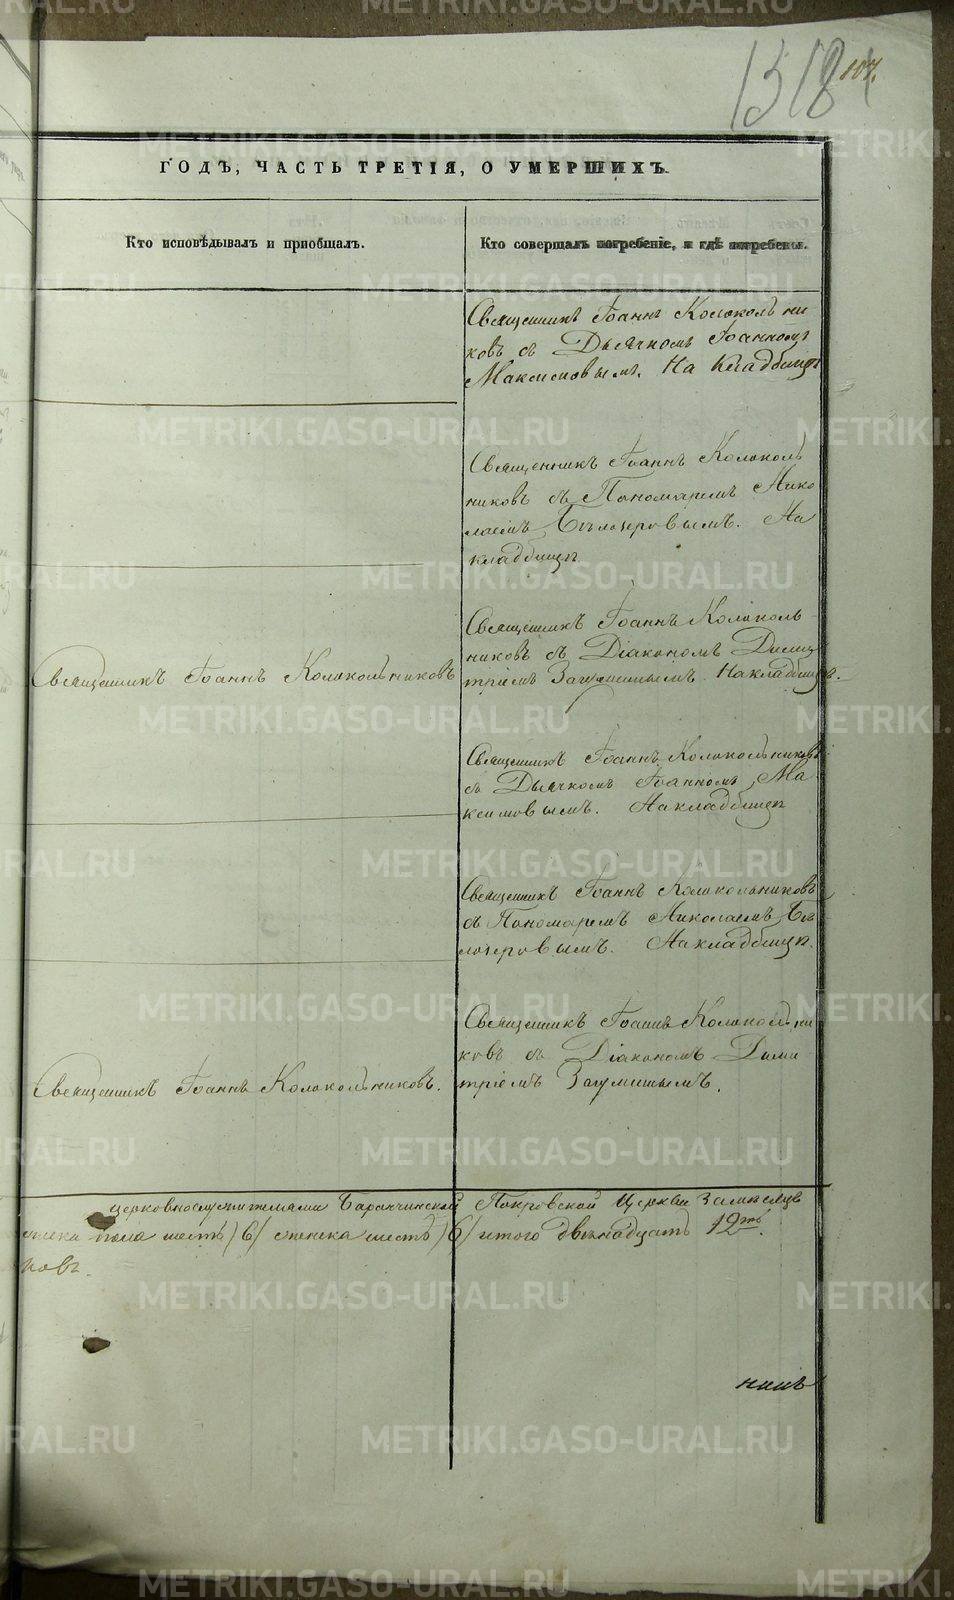 1318
107.
ГОДЪ, ЧАСТЬ ТРЕТІЯ, О УМЕРШИХЪ.
Кто исповѣдывалъ и пріобщалъ.
Кто совершалъ погребеніе, и гдѣ погребены.
Священникъ Іоаннъ Колокольни
ковъ съ Дьячкомъ Іоанномъ
Максимовымъ. На Кладбищѣ
Священникъ Іоаннъ Колоколь
никовъ съ Пономаремъ Нико
лаемъ Бѣлозеровымъ. На
кладбищѣ.
Священникъ Іоаннъ Колоколь
никовъ съ Діакономъ Дими
Священникъ Іоаннъ Колокольниковъ
тріемъ На кладбищѣ.
Священникъ Іоаннъ Колокольниковъ
съ Дьячкомъ Іоанномъ Ма
ксимовымъ. На кладбищѣ
Священникъ Іоаннъ Колокольниковъ
съ Пономаремъ Николаемъ Бѣ
лозеровымъ. На кладбищѣ.
Священникъ Іоаннъ Колокольни
ковъ съ Діакономъ Дими
Священникъ Іоаннъ Колокольниковъ.
тріемъ
церковнослужителями Баранчинской Покровской Церкви За мѣсяцъ
пола шесть /6/ женска шесть /6/ итого двѣнадцать 12ть.
ковъ.
METRIKI.GASO-URAL.RU